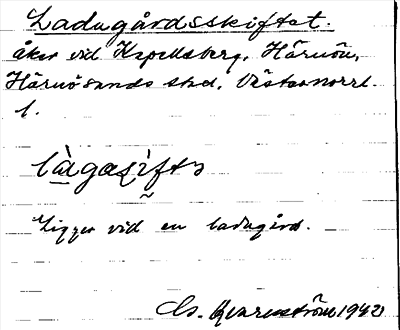 Ladugårdsskiftet.
åker vid Kapellsberg, Härnön,
Härnösands stad, Västernorrl.
l.
Ligger vid en ladugård.
1942